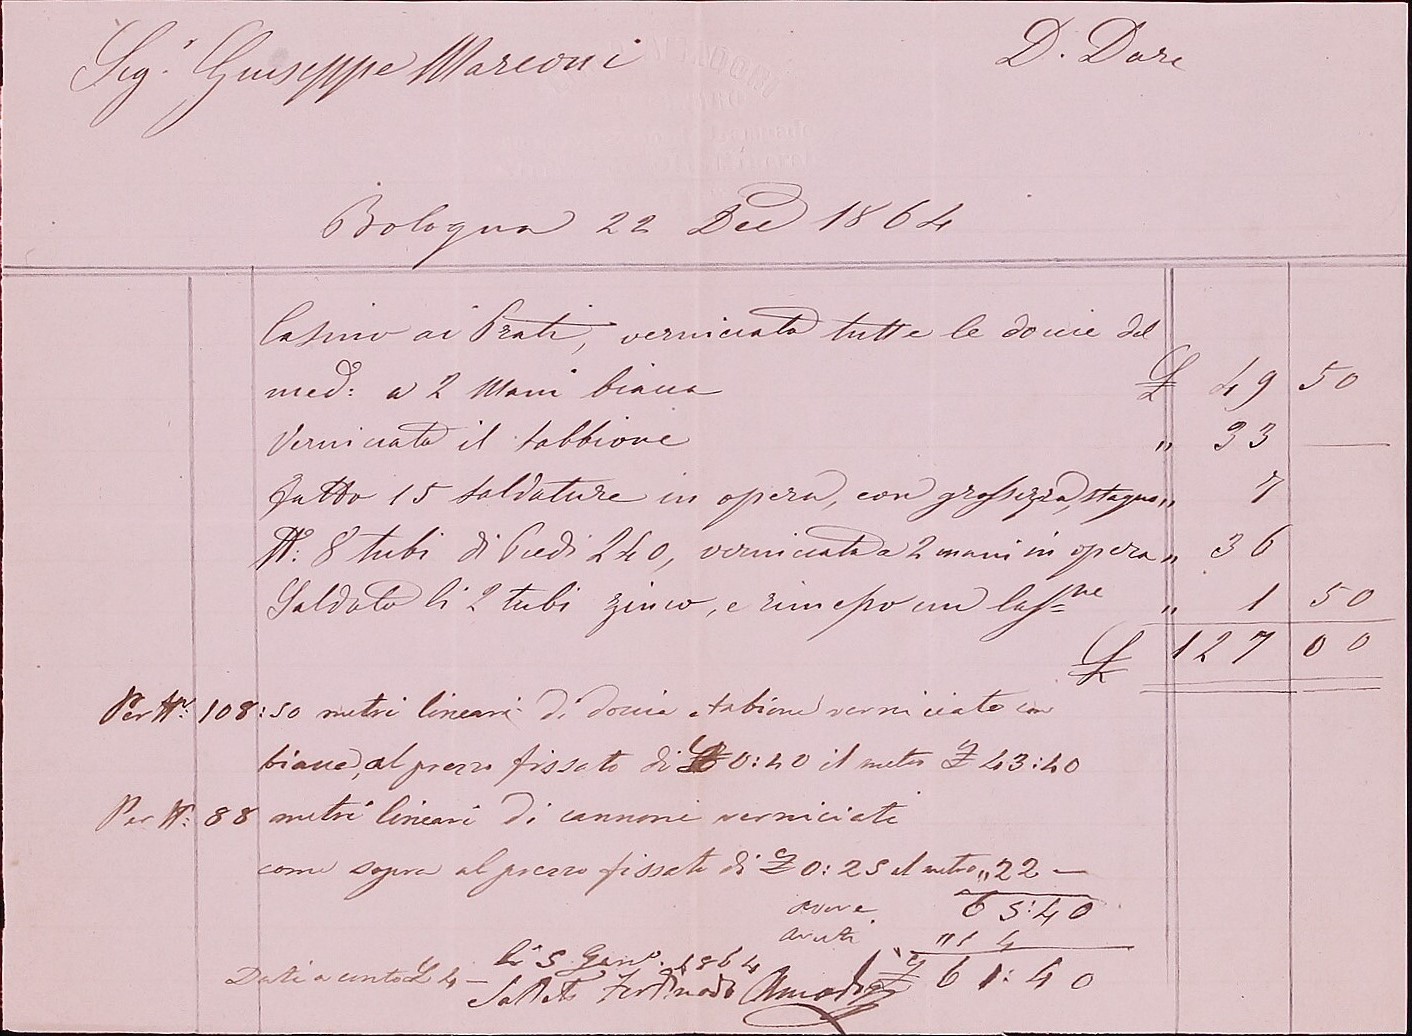 Sig.r Giuseppe Marconi
D. Dare
Bologna 22 Dec 1864
Casino ai Prati, verniciato tutte le doccie del
med: a 2 Mani biacca £ 49 50
Verniciato il sabbione " 33 —
fatto 15 saldature in opera, con grossezza, stagno " 7
N: 8 tubi di Piedi 240, verniciato a 2 mani in opera " 36
Saldato li 2 tubi zinco, e rimesso un " 1 50
£ 127 00
Per N: 108:50 metri lineari di doccia e verniciato con
biacca, al prezzo fissato di £ 0:40 il metro £ 43:40
Per N: 88 metri lineari di cannoni verniciati
come sopra al prezzo fissato di £ 0:25 il metro " 22 —
avere 65:40
avuti " 4
£ 61:40
li 5 Gen.o 1864
Dati a conto £ 4 —
Saldato Ferdinado